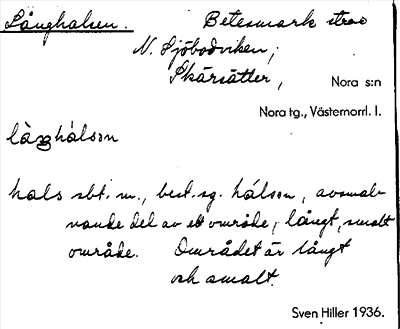 Långhalsen. Betesmark strax
N. Sjöbodviken,
Skärsätter, Nora s:n
Nora tg., Västernorrl. l.
làŋhálsən
hals sbt. m., best. sg. hálsən, avsmal-
nande del av ett område, långt, smalt
område. Området är långt
och smalt.
Sven Hiller 1936.